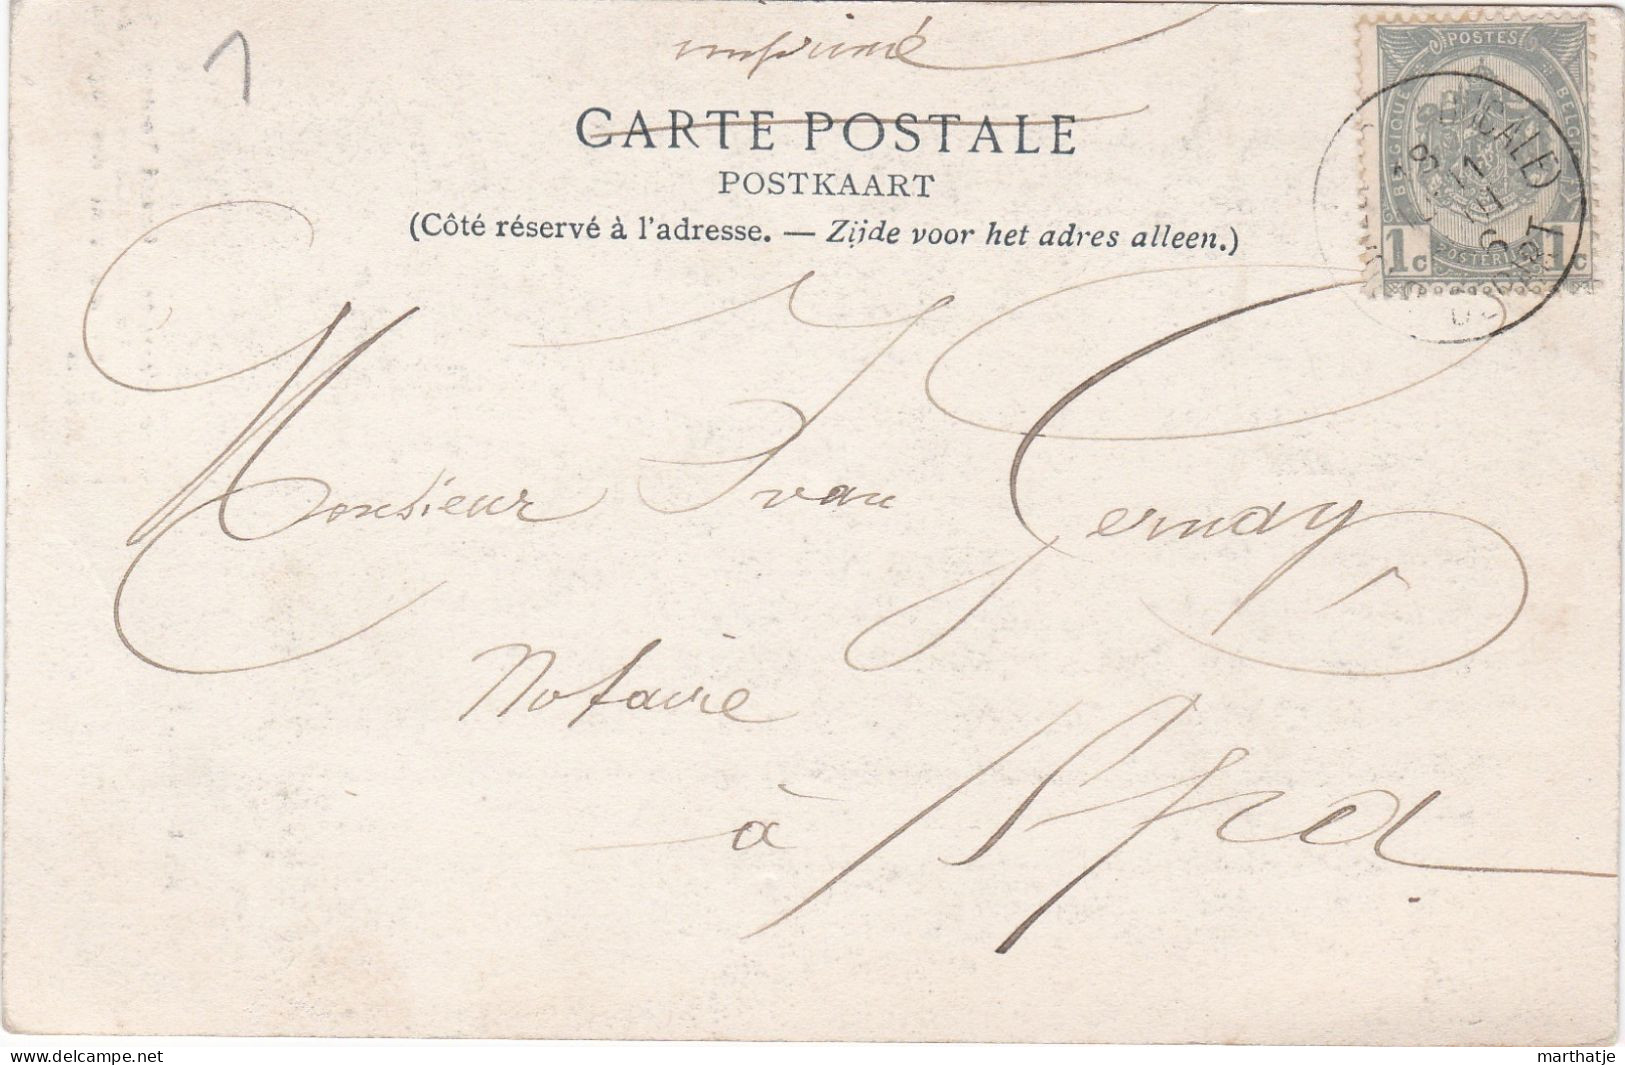 1
imprimé
CARTE POSTALE
POSTKAART
(Côté réservé à l'adresse. — Zijde voor het adres alleen.)
POSTES
BELGIQUE BELGIË
POSTERIJEN
1c 1c
Monsieur Ivan Gernay
Notaire
à Spa
www.delcampe.net
marthatje